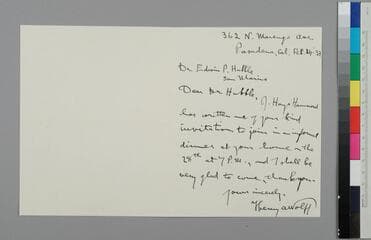 362 N. Marengo Ave
Pasadena, Cal. Feb. 24-33
Dr Edwin P. Hubble
San Marino
Dear Dr Hubble,
J. Hays Hammond
has written me of your kind
invitation to join in an informal
dinner at your home on the
28th at 7 P.M., and I shall be
very glad to come, thank you.
Yours sincerely,
Henry A Wolff